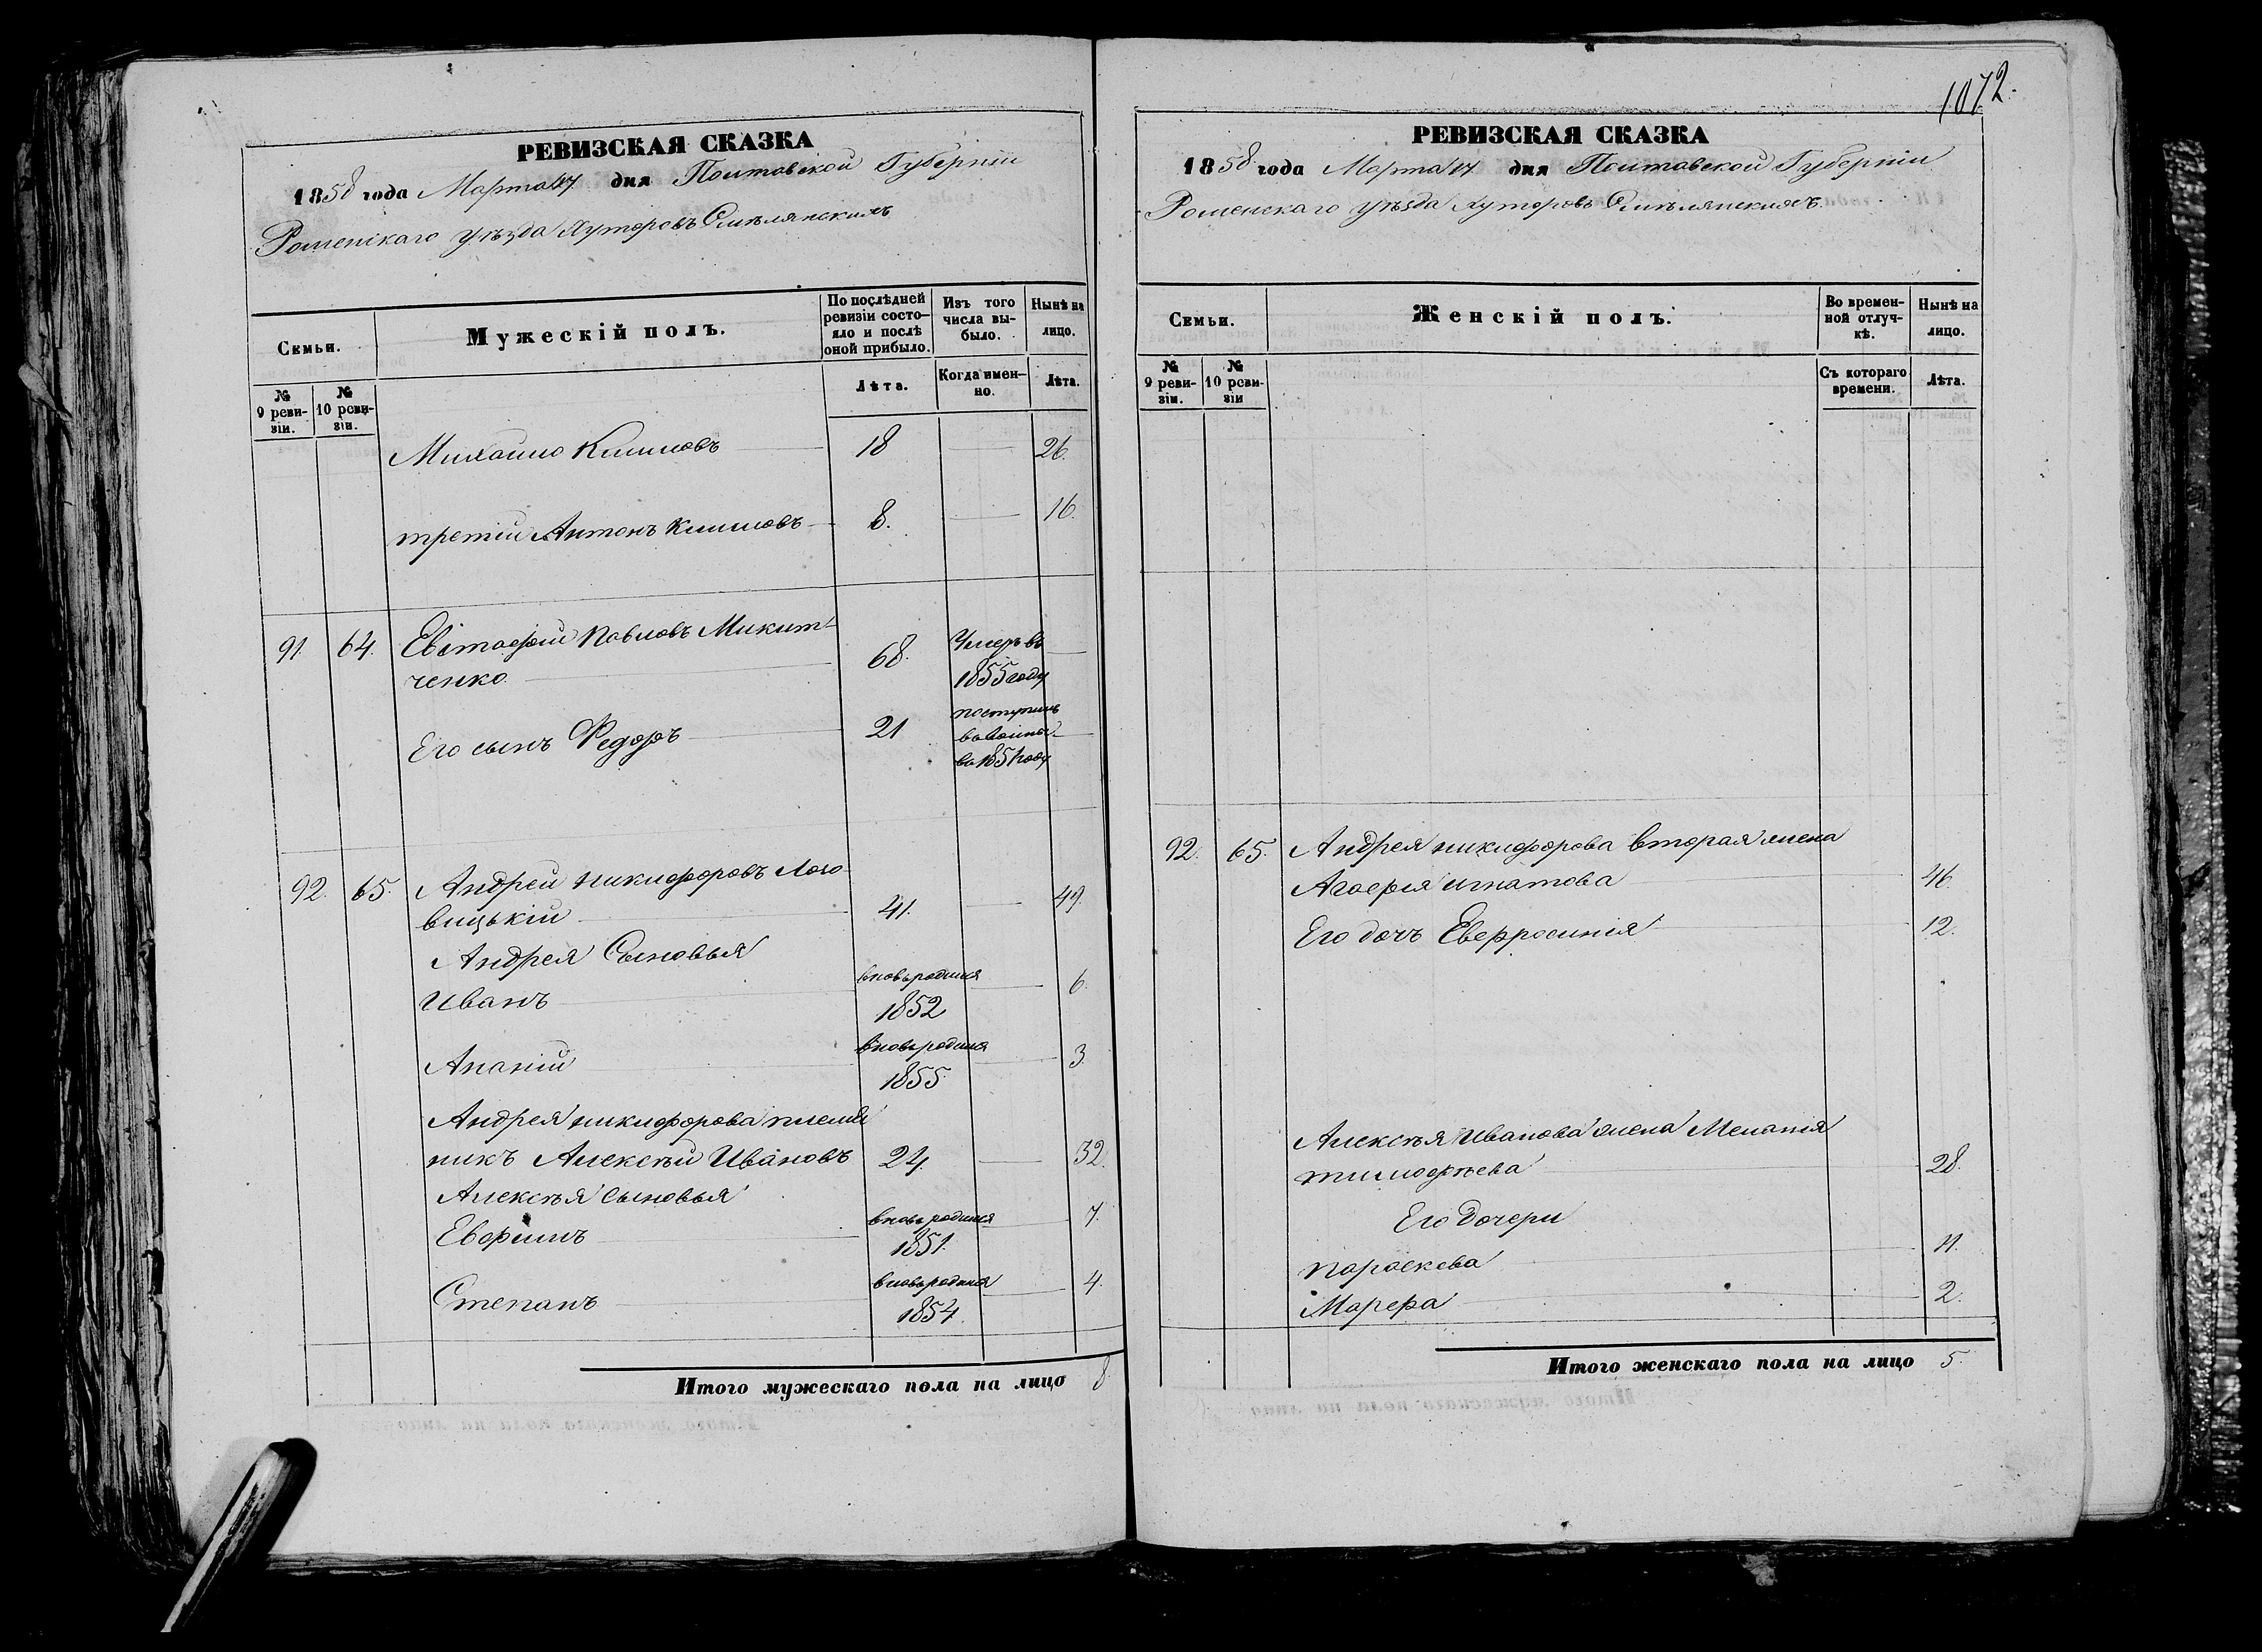 1072.
РЕВИЗСКАЯ СКАЗКА
1858 года Марта 17 дня Полтавской Губерніи
Роменскаго уѣзда Хуторовъ Смѣлянскихъ
Семьи.
Мужескій полъ.
По послѣдней ревизіи состояло и послѣ оной прибыло.
Изъ того числа выбыло.
Нынѣ на лицо.
№ 9 ревизіи.
№ 10 ревизіи.
Лѣта.
Когда именно.
Лѣта.
Михайло Климовъ 18 26.
третій Антонъ Климовъ 8. 16.
91. 64. Евстафій Павловъ Микит-
ченко 68. Умеръ въ 1855 году
Его сынъ Федоръ 21 поступилъ въ 1851 году
92. 65. Андрей Никифоровъ Лохо-
вицькій 41. 49.
Андрея Сыновья
Иванъ вновьродился 1852 6.
Ананій вновьродился 1855. 3.
Андрея Никифорова племя
никъ Алексѣй Ивановъ 24. 32.
Алексѣя сыновья
Евфимъ вновь родился 1851. 7.
Степанъ вновьродился 1854. 4.
Итого мужескаго пола на лицо 8
РЕВИЗСКАЯ СКАЗКА
1858 года Марта 17 дня Полтавской Губерніи
Роменскаго уѣзда Хуторовъ Смѣлянскихъ.
Семьи.
Женскій полъ.
Во временной отлучкѣ.
Нынѣ на лицо.
№ 9 ревизіи.
№ 10 ревизіи
Съ котораго времени.
Лѣта.
92. 65. Андрея Никифорова вторая жена
Агафія Игнатова 46.
Его дочь Евфросинія 12.
Алексѣя Иванова жена Меланія
Тимофѣева 28.
Его дочери
Параскева 11.
Марфа 2.
Итого женскаго пола на лицо 5.